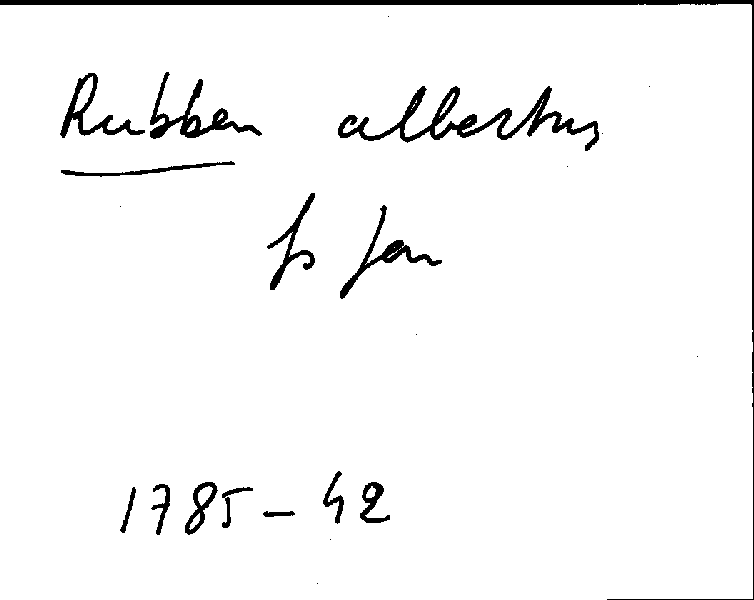 Rubben albertus
fs Jan
1785-42